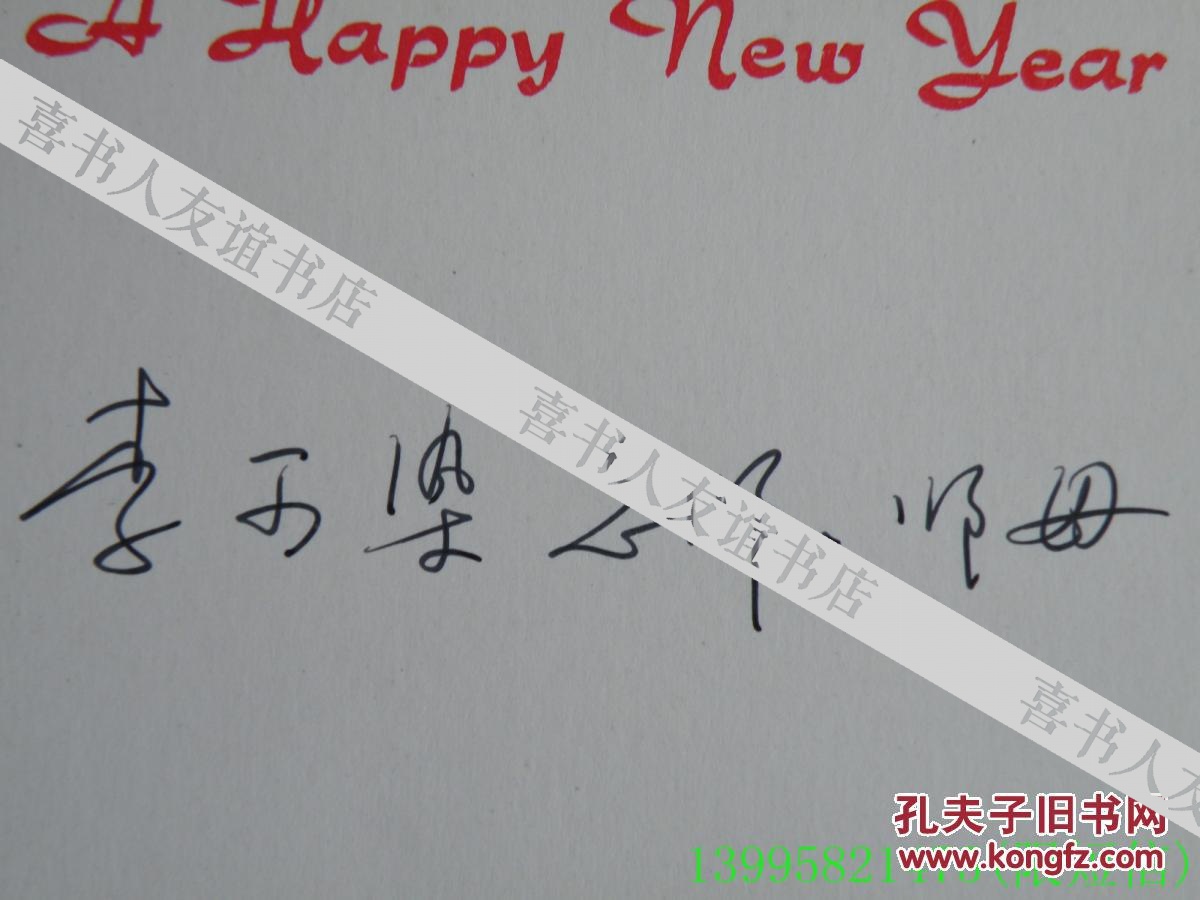 A Happy New Year
喜书人友谊书店
李可染 师母
喜书人友谊书店
喜书人友
孔夫子旧书网
www.kongfz.com